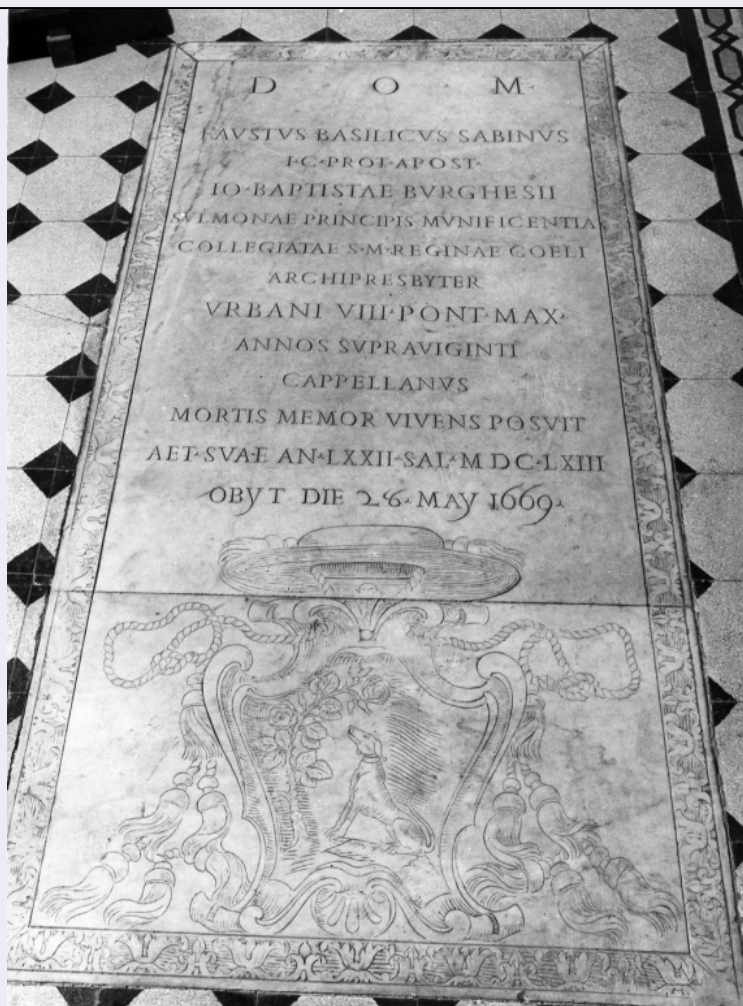 D O M
FAVSTVS BASILICVS SABINVS
I·C·PROT·APOST·
IO·BAPTISTAE BVRGHESII
SVLMONAE PRINCIPIS MVNIFICENTIA
COLLEGIATAE S·M·REGINAE COELI
ARCHIPRESBYTER
VRBANI VIII·PONT·MAX·
ANNOS SVPRAVIGINTI
CAPPELLANVS
MORTIS MEMOR VIVENS POSVIT
AET·SVAE AN·LXXII·SAL·M DC·LXIII
OBYT DIE 28·MAY 1669·